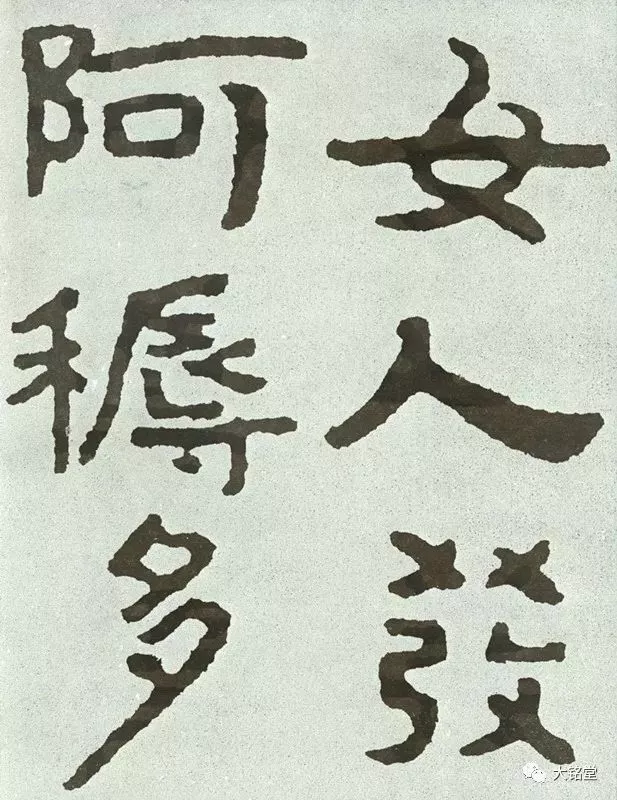 女人發
阿耨多
大铭堂